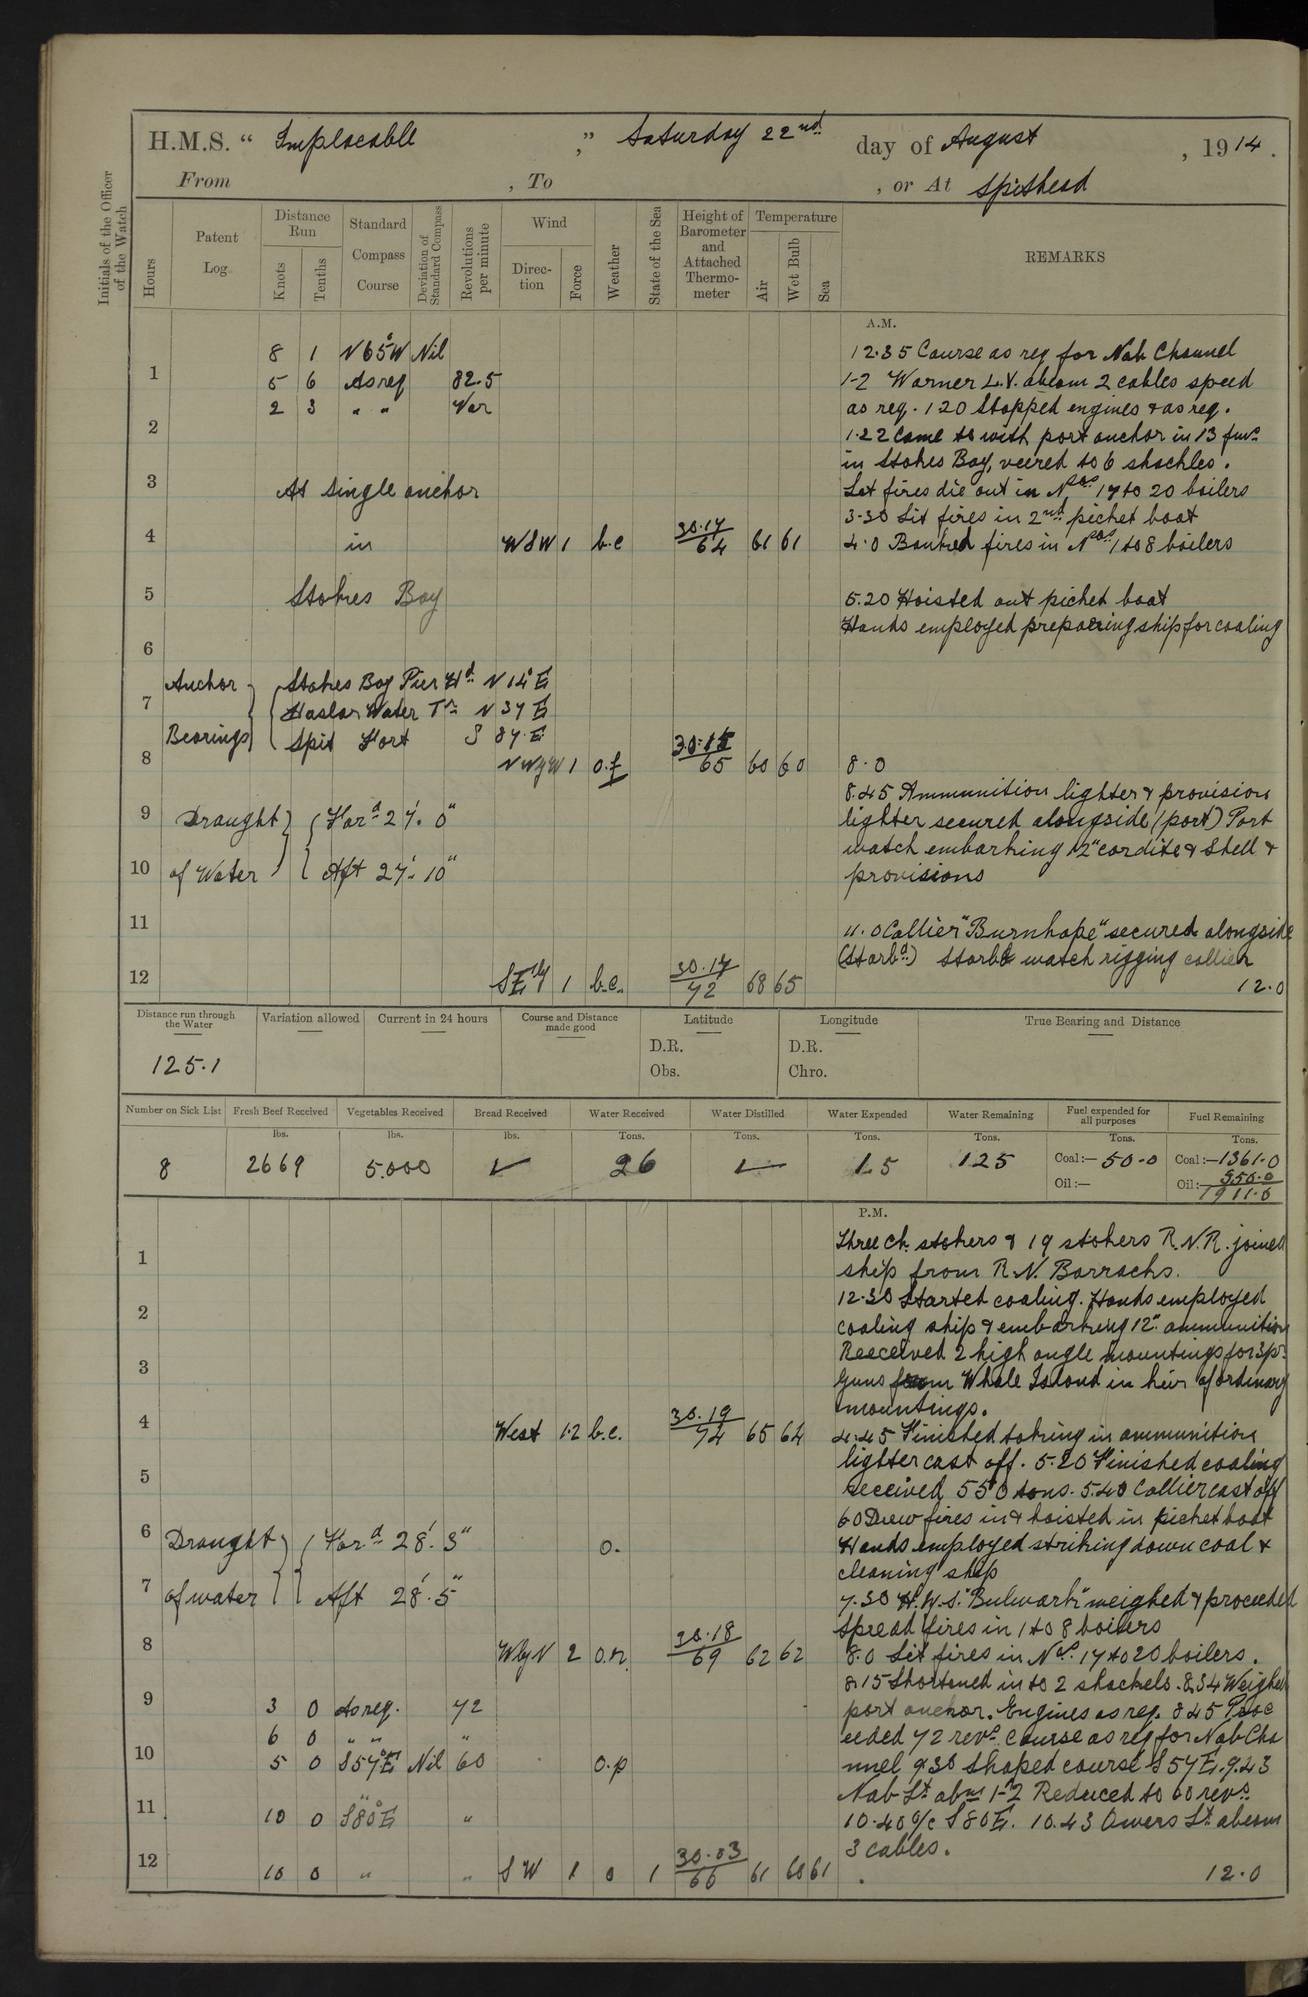 H.M.S. "Implacable", Saturday 22nd day of August, 1914.
From , To , or At Spithead
Initials of the Officer of the Watch
Hours
Patent Log
Distance Run
Knots
Tenths
Standard Compass Course
Deviation of Standard Compass
Revolutions per minute
Wind
Direction
Force
Weather
State of the Sea
Height of Barometer and Attached Thermometer
Temperature
Air
Wet Bulb
Sea
REMARKS
A.M.
8 1 N65°W Nil
1 5 6 As req 82.5
2 3 " " Var
2
3 At single anchor
4 in WSW 1 b.c 30.17/64 61 61
5 Stokes Bay
6
Anchor Bearings
Stokes Bay Pier Hd N14°E
7 Haslar Water Tr N 37 E
Spit Fort S 87 E
8 NWyW 1 o.f 30.15/65 60 60
9 Draught of Water Ford 27'. 0"
10 Aft 27'. 10"
11
12 SE'ly 1 b.c. 30.17/72 68 65
12.35 Course as req for Nab Channel
1-2 Warner L.V. abeam 2 cables speed
as req. 1 20 Stopped engines & as req.
1.22 Came to with port anchor in 13 fms
in Stokes Bay, veered to 6 shackles.
Let fires die out in Nos 17 to 20 boilers
3-30 Lit fires in 2nd picket boat
4.0 Banked fires in Nos 1 to 8 boilers
5.20 Hoisted out picket boat
Hands employed preparing ship for coaling
8.0
8.45 Ammunition lighter & provision
lighter secured alongside (port) Port
watch embarking 12" cordite & Shell &
provisions
11.0 Collier "Burnhope" secured alongside
(Starbd) Starbd watch rigging collier
12.0
Distance run through the Water
125.1
Variation allowed
Current in 24 hours
Course and Distance made good
Latitude
D.R.
Obs.
Longitude
D.R.
Chro.
True Bearing and Distance
Number on Sick List
8
Fresh Beef Received
lbs.
2669
Vegetables Received
lbs.
5.000
Bread Received
lbs.
Water Received
Tons.
26
Water Distilled
Tons.
Water Expended
Tons.
15
Water Remaining
Tons.
125
Fuel expended for all purposes
Tons.
Coal:— 50.0
Oil:—
Fuel Remaining
Tons.
Coal:— 1361.0
550.0
Oil:— 1911.0
P.M.
1
2
3
4 West 1.2 b.c. 30.19/74 65 64
5
6 Draught of water Ford 28'. 3" o.
7 Aft 28'. 5"
8 WbyN 2 o.r. 30.18/69 62 62
9 3 0 As req. 72
6 0 " " "
10 5 0 S57°E Nil 60 o.p
11 10 0 S80°E " "
12 10 0 " " SW 1 o 1 30.03/66 61 60 61
Three Ch. stokers & 19 stokers R.N.R. joined
ship from R.N. Barracks.
12.30 Started coaling. Hands employed
coaling ship & embarking 12" ammunition
Reeceived 2 high angle mountings for 3pr
guns from Whale Island in lieu of ordinary
mountings.
4.45 Finished taking in ammunition
lighter cast off. 5.20 Finished coaling
received 550 tons. 5.40 Collier cast off
6.0 Drew fires in & hoisted in picket boat
Hands employed striking down coal &
cleaning ship
7.30 H.M.S. "Bulwark" weighed & proceeded
Spread fires in 1 to 8 boilers
8.0 Lit fires in Nos. 17 to 20 boilers.
8.15 Shortened in to 2 shackels. 8.34 Weighed
port anchor. Engines as req. 8 45 Proc
eeded 72 revs. course as req for Nab Cha
nnel 9.30 Shaped course S 57 E. 9.43
Nab Lt abm 1-2 Reduced to 60 revs
10.40 a/c S80E. 10.43 Owers Lt abeam
3 cables.
12.0